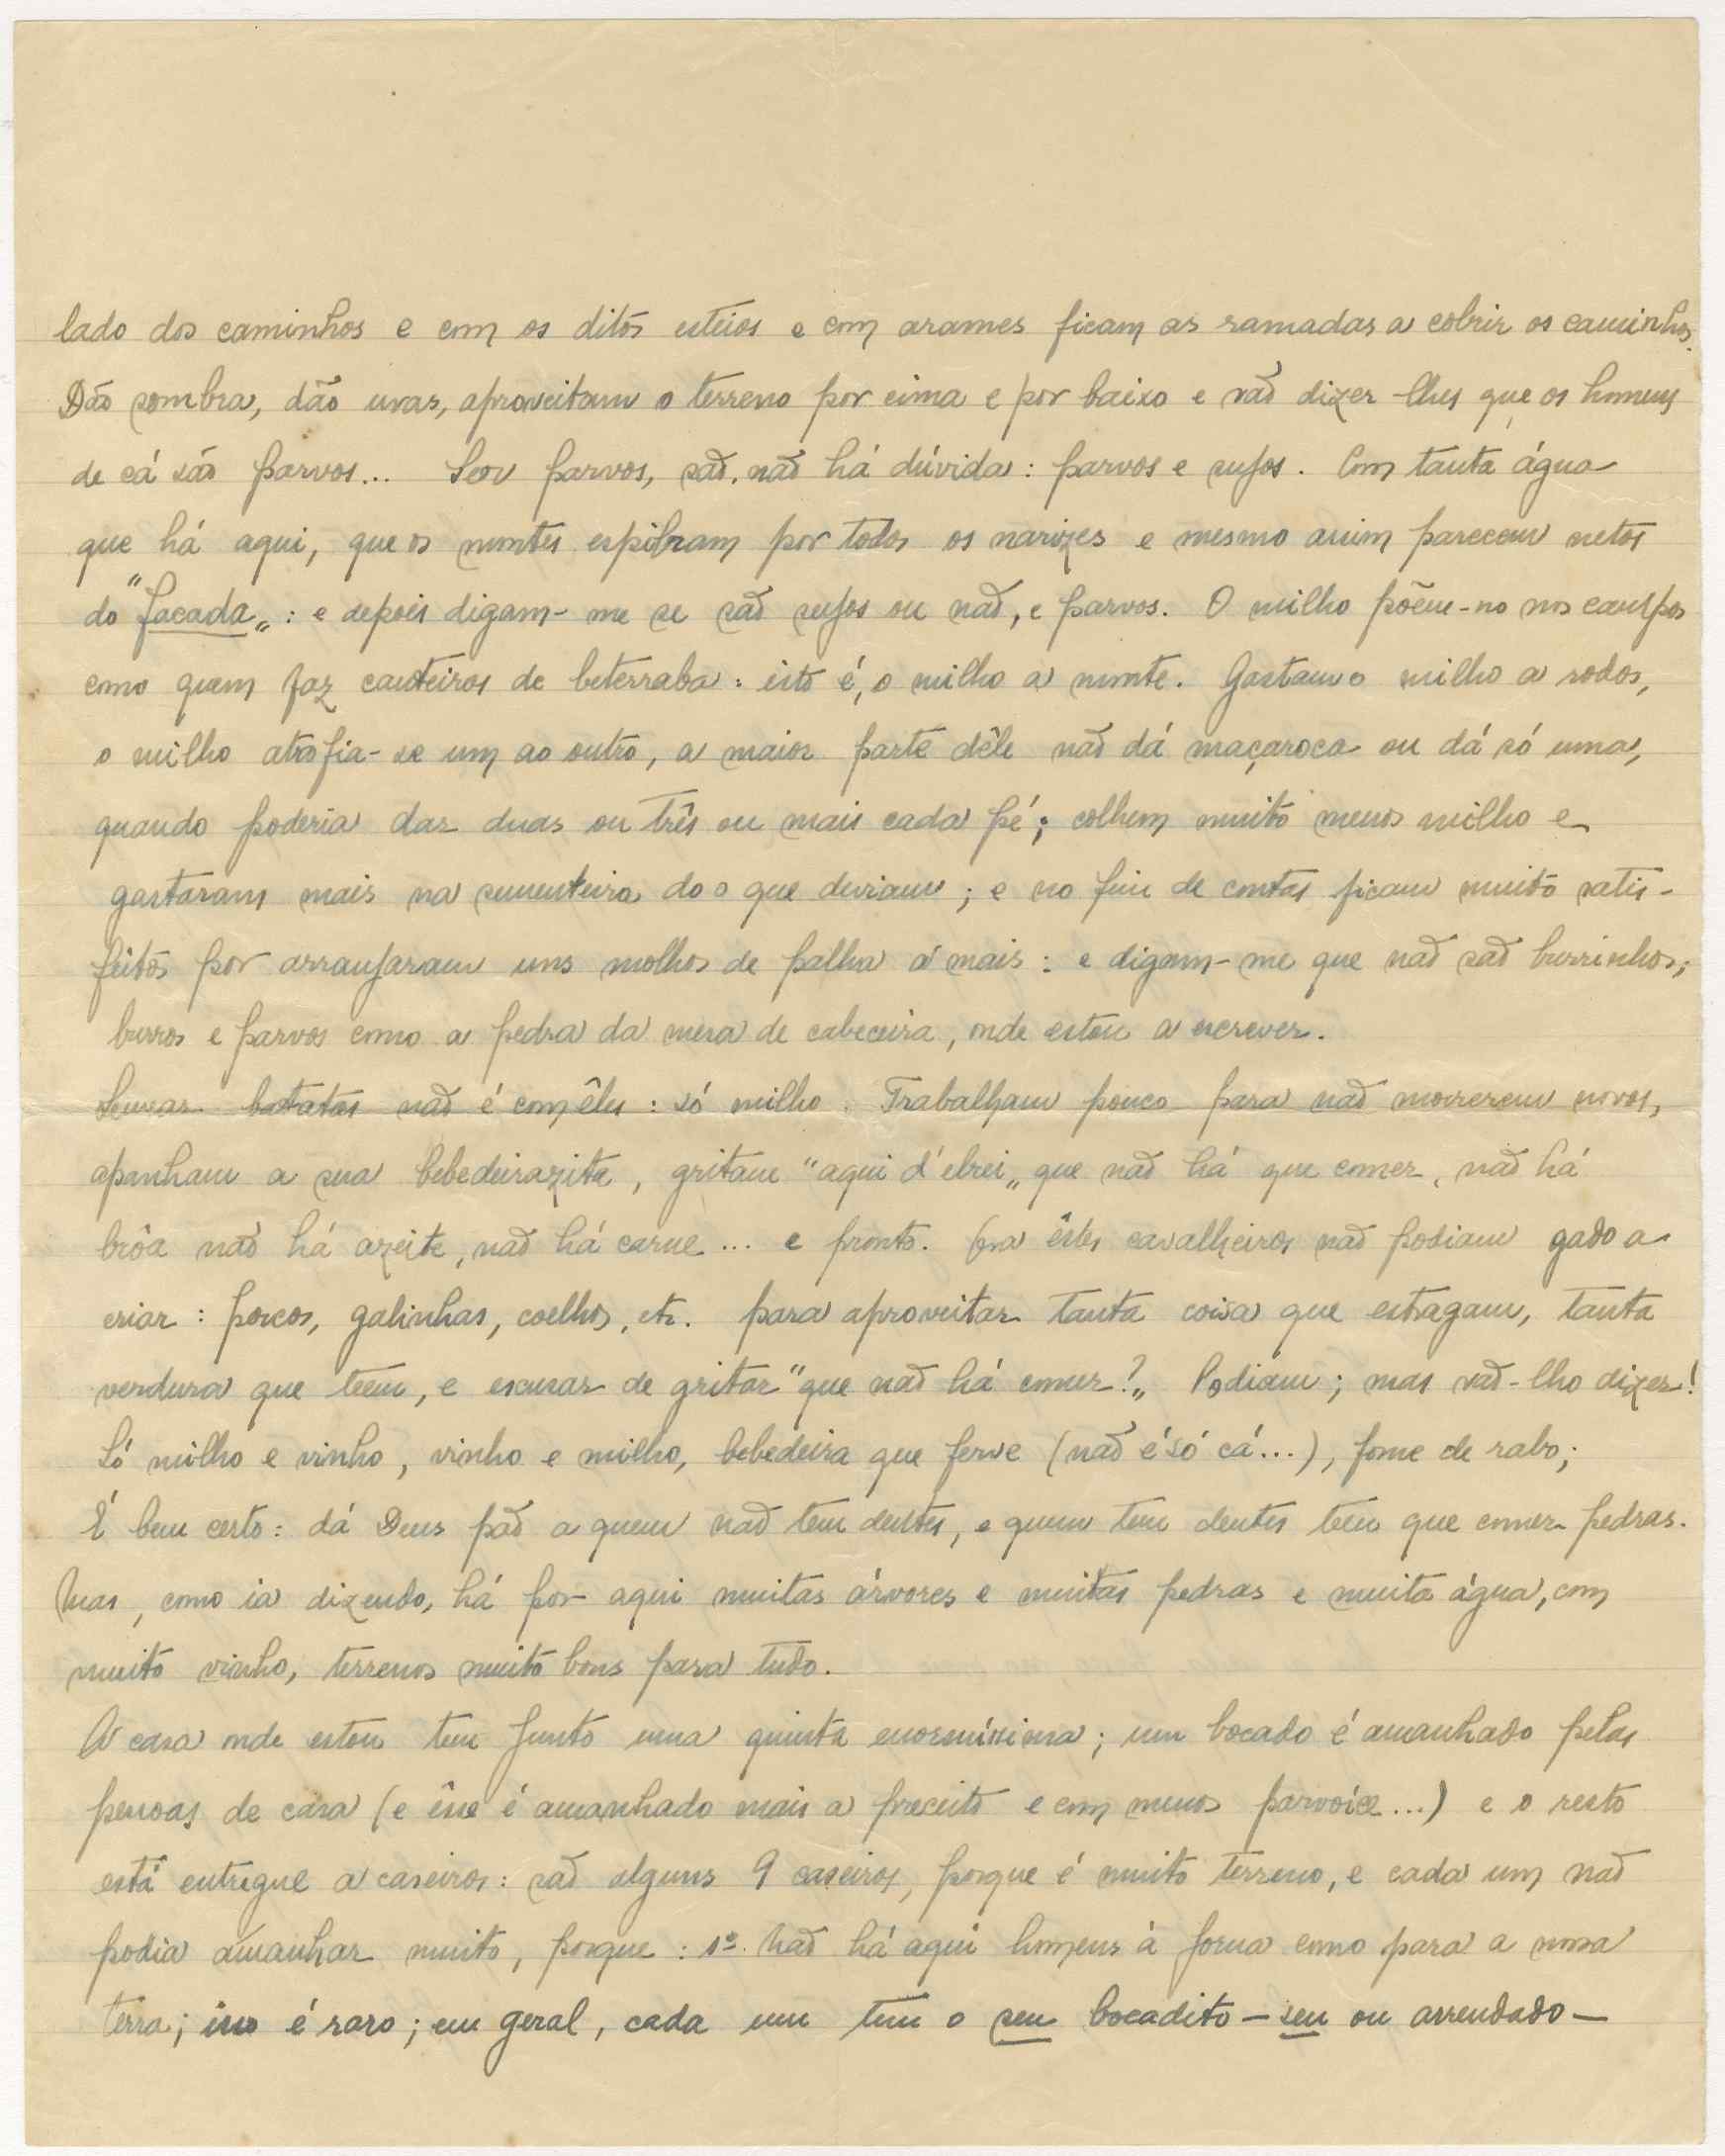 lado dos caminhos e com os ditos esteios e com arames ficam as ramadas a cobrir os caminhos.
Dão sombra, dão uvas, aproveitam o terreno por cima e por baixo e vão dizer-lhes que os homens
de cá são parvos... parvos, são, não há dúvida: parvos e sujos. Com tanta água
que há aqui, que os montes espirram por todos os narizes e mesmo assim parecem netos
do "Facada„: e depois digam-me se são sujos ou não, e parvos. O milho põem-no nos campos
como quem faz canteiros de beterraba: isto é, o milho a monte. Gastam o milho a rodos,
o milho atrofia-se um ao outro, a maior parte dêle não dá maçaroca ou dá só uma,
quando poderia dar duas ou três ou mais cada pé; colhem muito menos milho e
gastaram mais na sementeira do o que deviam; e no fim de contas ficam muito satis-
feitos por arranjaram uns molhos de palha a mais: e digam-me que não são burrinhos;
burros e parvos como a pedra da mesa de cabeceira, onde estou a escrever.
Semear batatas não é com êles: só milho. Trabalham pouco para não morrerem novos,
apanham a sua bebedeirazita, gritam "aqui d'elrei„ que não há que comer, não há
brôa não há azeite, não há carne... e pronto. Ora êstes cavalheiros não podiam gado a
criar: porcos, galinhas, coelhos, etc. para aproveitar tanta coisa que estragam, tanta
verdura que teem, e escusar de gritar "que não há comer?„ Podiam; mas vão-lho dizer!
Só milho e vinho, vinho e milho, bebedeira que ferve (não é só cá...), fome de rabo;
É bem certo: dá Deus pão a quem não tem dentes, e quem tem dentes tem que comer pedras.
Mas, como ia dizendo, há por aqui muitas árvores e muitas pedras e muita água, com
muito vinho, terrenos muito bons para tudo.
A casa onde estou tem junto uma quinta enormíssima; um bocado é amanhado pelas
pessoas de casa (e êsse é amanhado mais a preceito e com menos parvoíce...) e o resto
está entregue a caseiros: são alguns 9 caseiros, porque é muito terreno, e cada um não
podia amanhar muito, porque: 1º. Não há aqui homens à jorna como para a nossa
terra; isso é raro; em geral, cada um tem o seu bocadito — seu ou arrendado —